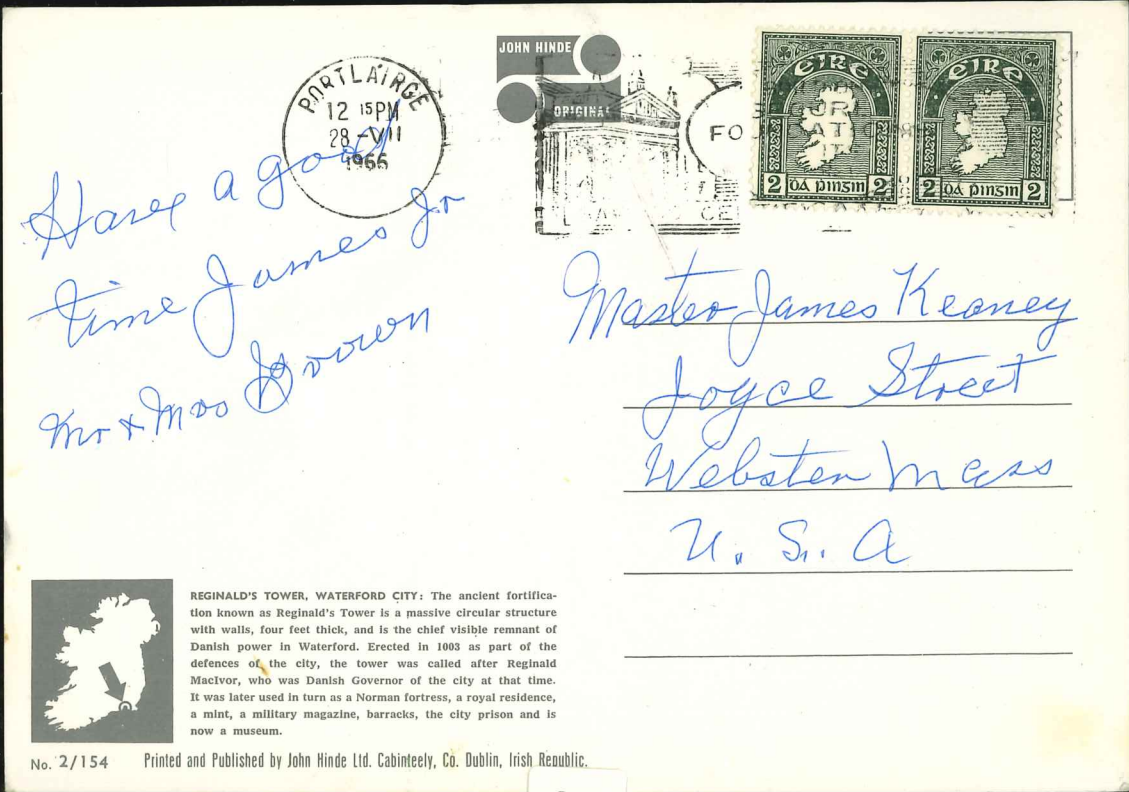 JOHN HINDE
ORIGINAL
PORTLÁIRGE
12 15 PM
28 -VII
1966
FO
EIRE
2 DÁ PINGIN 2
EIRE
2 DÁ PINGIN 2
Have a good
time James Jr
Mr & Mrs Brown
Master James Keaney
Joyce Street
Webster Mass
U. S. A
REGINALD'S TOWER, WATERFORD CITY: The ancient fortifica-
tion known as Reginald's Tower is a massive circular structure
with walls, four feet thick, and is the chief visible remnant of
Danish power in Waterford. Erected in 1003 as part of the
defences of the city, the tower was called after Reginald
MacIvor, who was Danish Governor of the city at that time.
It was later used in turn as a Norman fortress, a royal residence,
a mint, a military magazine, barracks, the city prison and is
now a museum.
No. 2/154
Printed and Published by John Hinde Ltd. Cabinteely, Co. Dublin, Irish Republic.